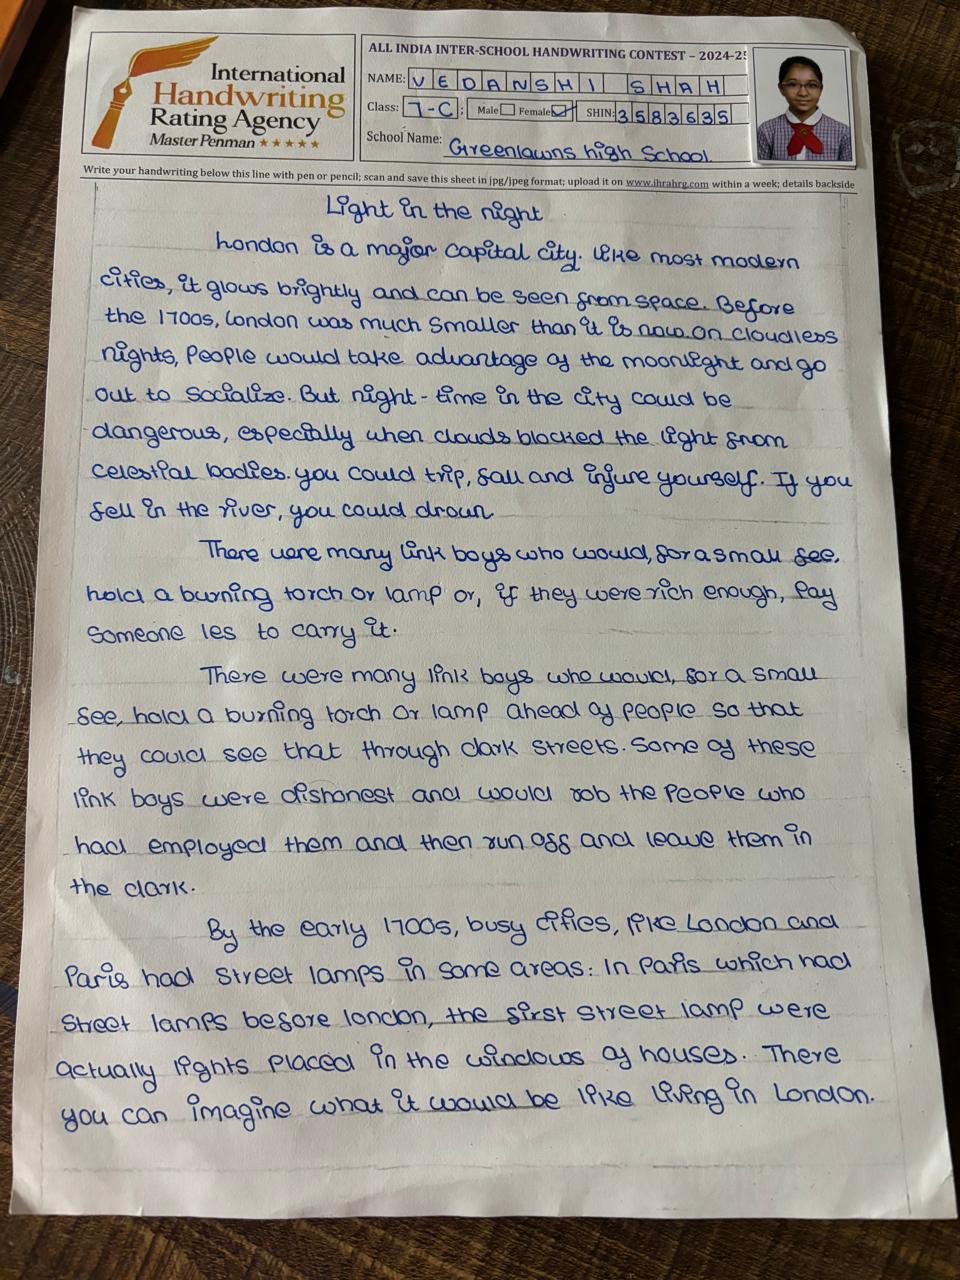 International
Handwriting
Rating Agency
Master Penman ★★★★★
ALL INDIA INTER-SCHOOL HANDWRITING CONTEST – 2024-25
NAME: VEDANSHI SHAH
Class: 7-C; Male Female SHIN: 3583635
School Name: Greenlawns high School.
Write your handwriting below this line with pen or pencil; scan and save this sheet in jpg/jpeg format; upload it on www.ihrahrg.com within a week; details backside
Light in the night
London is a major capital city. Like most modern
cities, it glows brightly and can be seen from space. Before
the 1700s, London was much smaller than it is now. On cloudless
nights, people would take advantage of the moonlight and go
out to socialize. But night-time in the city could be
dangerous, especially when clouds blocked the light from
celestial bodies. you could trip, fall and injure yourself. If you
fell in the river, you could drown
There were many link boys who would, for a small fee,
hold a burning torch or lamp or, if they were rich enough, Pay
someone les to carry it.
There were many link boys who would, for a small
fee, hold a burning torch or lamp ahead of people so that
they could see that through dark streets. Some of these
link boys were dishonest and would rob the people who
had employed them and then run off and leave them in
the dark.
By the early 1700s, busy cities, like London and
Paris had street lamps in some areas. In Paris which had
street lamps before london, the first street lamp were
actually lights placed in the windows of houses. There
you can imagine what it would be like living in London.